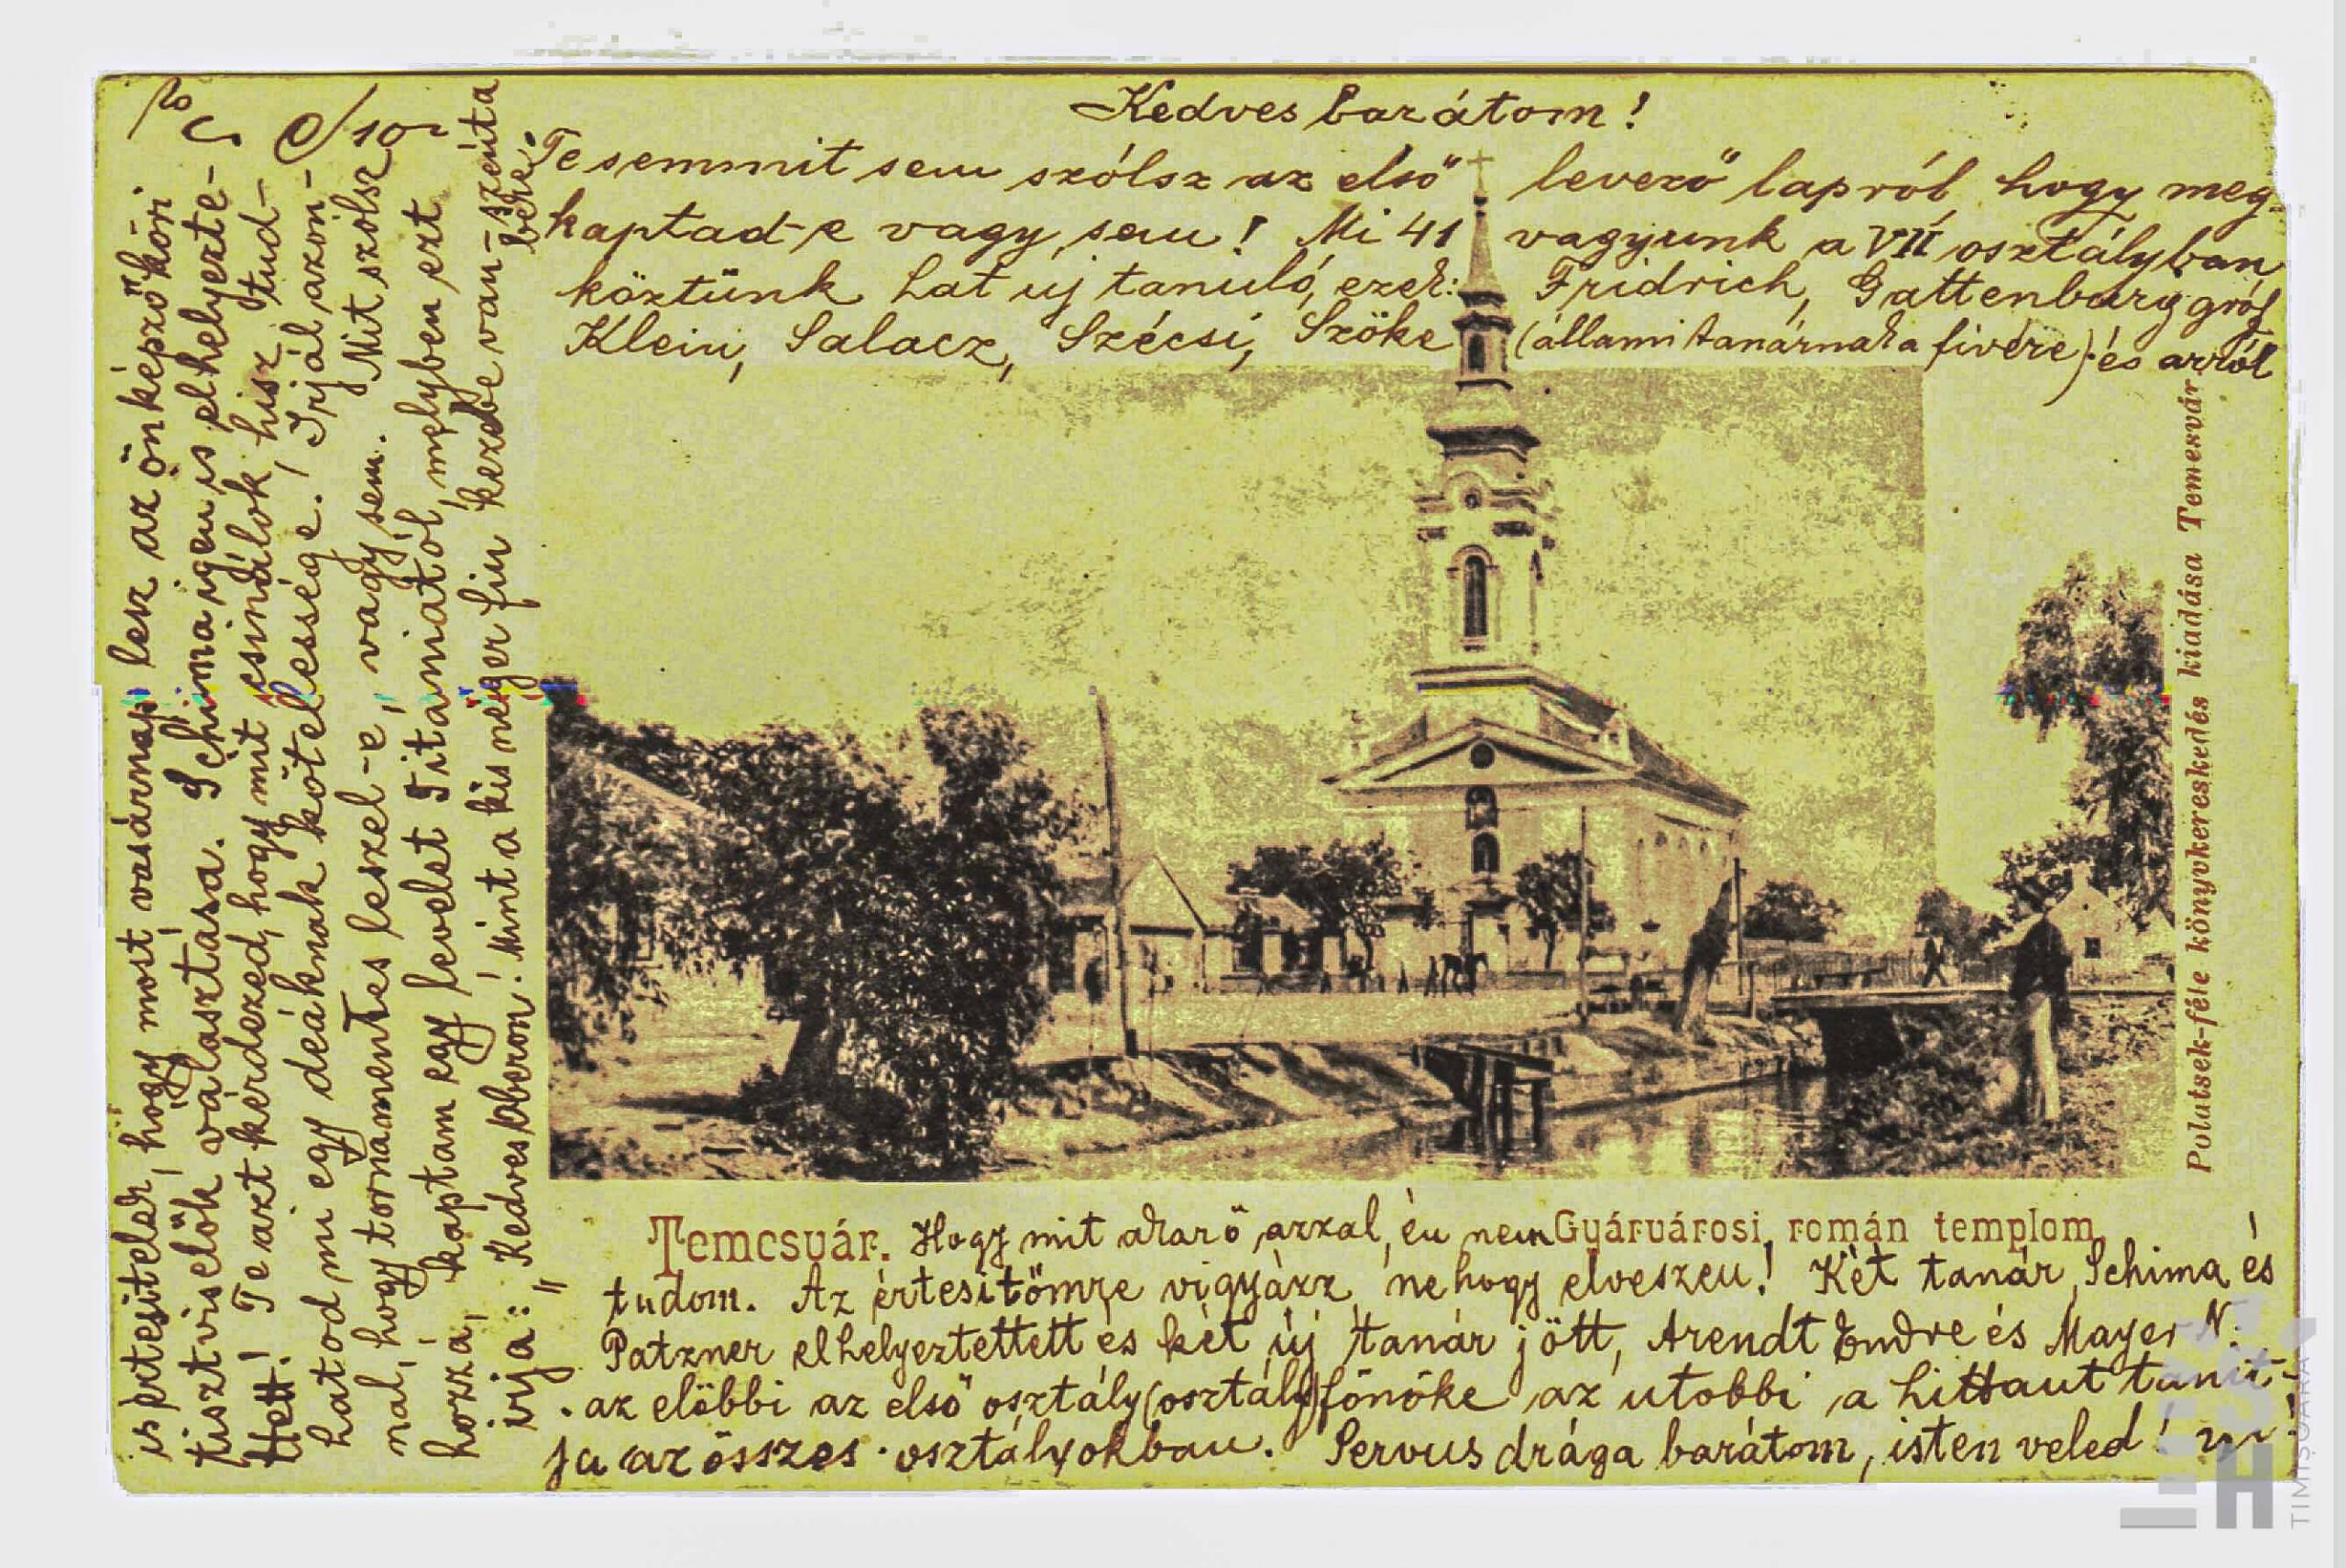 Kedves barátom!
Te semmit sem szólsz az első levező lapról, hogy meg-
kaptad-e vagy sem! Mi 41 vagyunk a VII osztályban
köztünk hat uj tanuló, ezek: Fridrich, Gattenburg gróf
Klein, Salacz, Szécsi, Szőke (állami tanárnak a fivére) és arról
is értesitelek, hogy most vasárnap lesz az önképzőköri
tisztviselők választása. Schima igen is elhelyezte-
ttett! Te azt kérdezed, hogy mit csinálok, hisz tud-
hatod mi egy deáknak kötelessége. Irjál azon-
nal, hogy tornamentes leszel-e, vagy sem. Mit szólsz
hozzá, kaptam egy levelet Titaniától, melyben ezt
irja: "Kedves Oberon! Mint a kis néger fiu kezébe van-szenita
bére."
Temesvár. Gyárvárosi román templom
Hogy mit akar ő azzal, én nem
tudom. Az értesitőmre vigyázz, nehogy elveszen! Két tanár, Schima és
Patzner elhelyeztettett és két új tanár jött, Arendt Endre és Mayer N.
az előbbi az első osztály (osztály)főnöke az utobbi a hittant tanit-
ja az összes osztályokban. Servus drága barátom, isten veled!
Polatsek-féle könyvkereskedés kiadása Temesvár
TIMIȘOARA